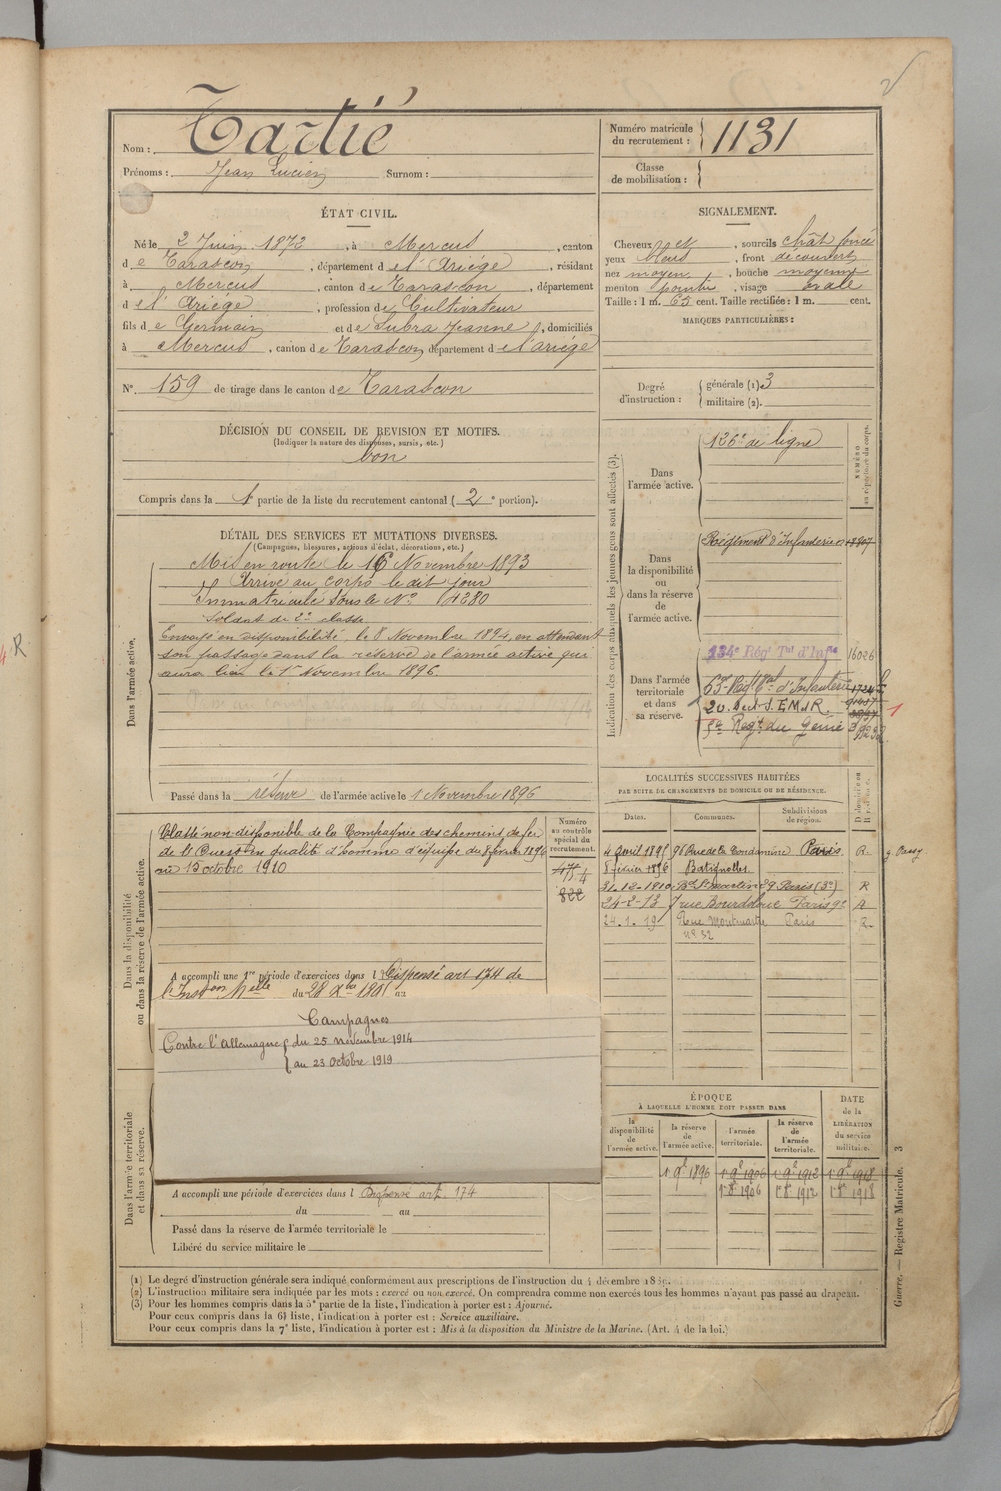 2
Nom : Tartié
Prénoms : Jean Lucien Surnom :
Numéro matricule du recrutement : 1131
Classe de mobilisation :
ÉTAT CIVIL.
Né le 2 Juin 1872, à Mercus, canton
de Tarascon, département de l'Ariége, résidant
à Mercus, canton de Tarascon, département
de l'Ariége, profession de Cultivateur
fils de Germain et de Subra Jeanne, domiciliés
à Mercus, canton de Tarascon, département de l'ariége
N° 159 de tirage dans le canton de Tarascon
DÉCISION DU CONSEIL DE REVISION ET MOTIFS.
(Indiquer la nature des dispenses, sursis, etc.)
bon
Compris dans la 1 partie de la liste du recrutement cantonal (2e portion).
SIGNALEMENT.
Cheveux et, sourcils chât foncé
yeux bleus, front découvert
nez moyen, bouche moyenne
menton pointu, visage ovale
Taille : 1 m. 65 cent. Taille rectifiée : 1 m. cent.
MARQUES PARTICULIÈRES :
Degré d'instruction : générale (1) 3
militaire (2).
DÉTAIL DES SERVICES ET MUTATIONS DIVERSES.
(Campagnes, blessures, actions d'éclat, décorations, etc.)
Dans l'armée active.
Mis en route le 16 Novembre 1893
Arrivé au corps le dit jour
Immatriculé sous le N° 4280
Soldat de 2e classe
Envoyé en disponibilité le 8 Novembre 1894, en attendant
son passage dans la réserve de l'armée active qui
aura lieu le 1er Novembre 1896.
Passé dans la réserve de l'armée active le 1 Novembre 1896
Dans la disponibilité ou dans la réserve de l'armée active.
Numéro au contrôle spécial du recrutement.
Classé non-disponible de la Compagnie des chemins de fer
de l'Ouest en qualité d'homme d'équipe du 8 février 1896
au 15 octobre 1910
822
A accompli une 1re période d'exercices dans l Dispensé art 174 de
l'Inston Melle du 28 Xbre 1895 au
Campagnes
Contre l'Allemagne { du 25 novembre 1914
{ au 23 Octobre 1919
Dans l'armée territoriale et dans sa réserve.
A accompli une période d'exercices dans l Dispensé art. 174
du au
Passé dans la réserve de l'armée territoriale le
Libéré du service militaire le
Indication des corps auxquels les jeunes gens sont affectés (3).
NUMÉRO au répertoire du corps.
Dans l'armée active.
126e de ligne
Dans la disponibilité ou dans la réserve de l'armée active.
Régiment d'Infanterie
Dans l'armée territoriale et dans sa réserve.
134e Régt Tal d'Infie 16026
63e Régt Tal d'Infanterie
20. Sect. S.E.M.R.
5e Régt du Génie
1
LOCALITÉS SUCCESSIVES HABITÉES
PAR SUITE DE CHANGEMENTS DE DOMICILE OU DE RÉSIDENCE.
Dates. Communes. Subdivisions de région. D domicile ou R résidence.
4 avril 1895 96 Rue de la Condamine Paris R
8 février 1896 Batignolles
31-12-1910 Bd St martin 29 Paris (3e) R
24-2-13 7 rue Bourdaloue Paris 9e R
24.1.19 Rue Montmartre Paris R
N° 32
ÉPOQUE
À LAQUELLE L'HOMME DOIT PASSER DANS
la disponibilité de l'armée active. la réserve de l'armée active. l'armée territoriale. la réserve de l'armée territoriale. DATE de la LIBÉRATION du service militaire.
1 9e 1896 1 9e 1906 1 9e 1912 1 9e 1918
1906 1912 1918
(1) Le degré d'instruction générale sera indiqué conformément aux prescriptions de l'instruction du 4 décembre 1889.
(2) L'instruction militaire sera indiquée par les mots : exercé ou non exercé. On comprendra comme non exercés tous les hommes n'ayant pas passé au drapeau.
(3) Pour les hommes compris dans la 5e partie de la liste, l'indication à porter est : Ajourné.
Pour ceux compris dans la 6e liste, l'indication à porter est : Service auxiliaire.
Pour ceux compris dans la 7e liste, l'indication à porter est : Mis à la disposition du Ministre de la Marine. (Art. 4 de la loi.)
Guerre. — Registre Matricule. 3